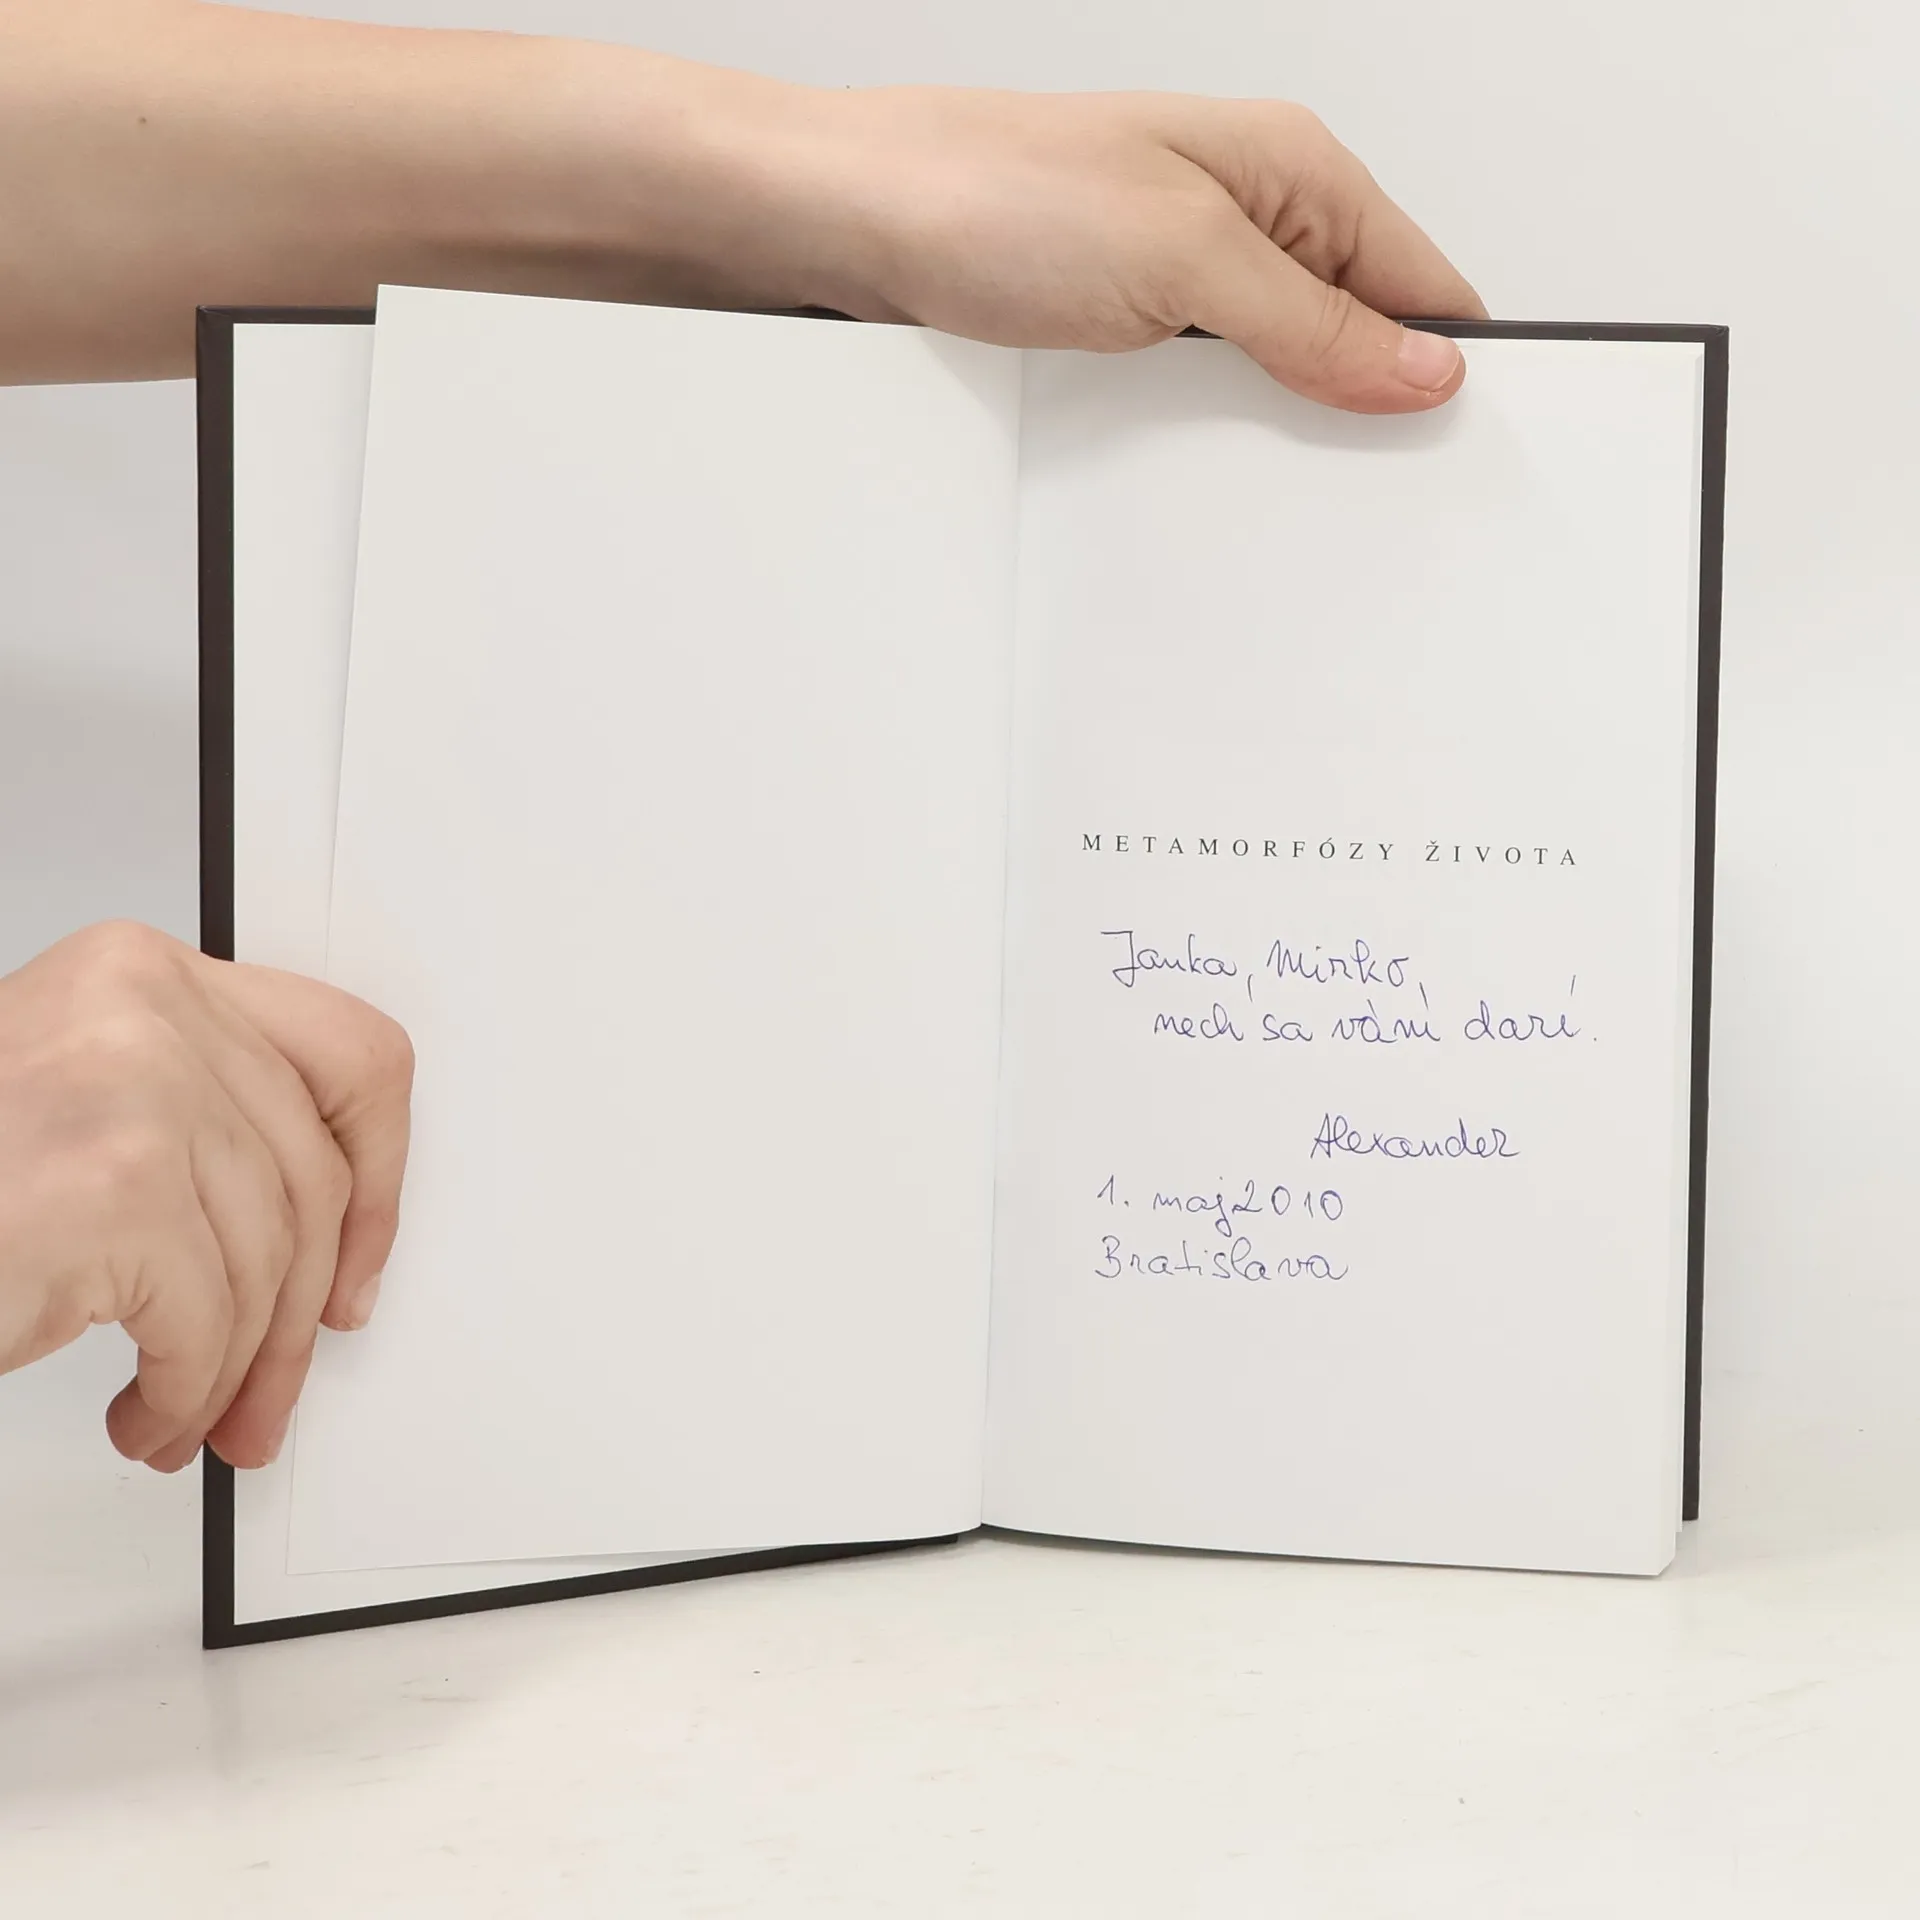 METAMORFÓZY ŽIVOTA
Janka, Mirko,
nech sa vám darí.
Alexander
1. maj 2010
Bratislava